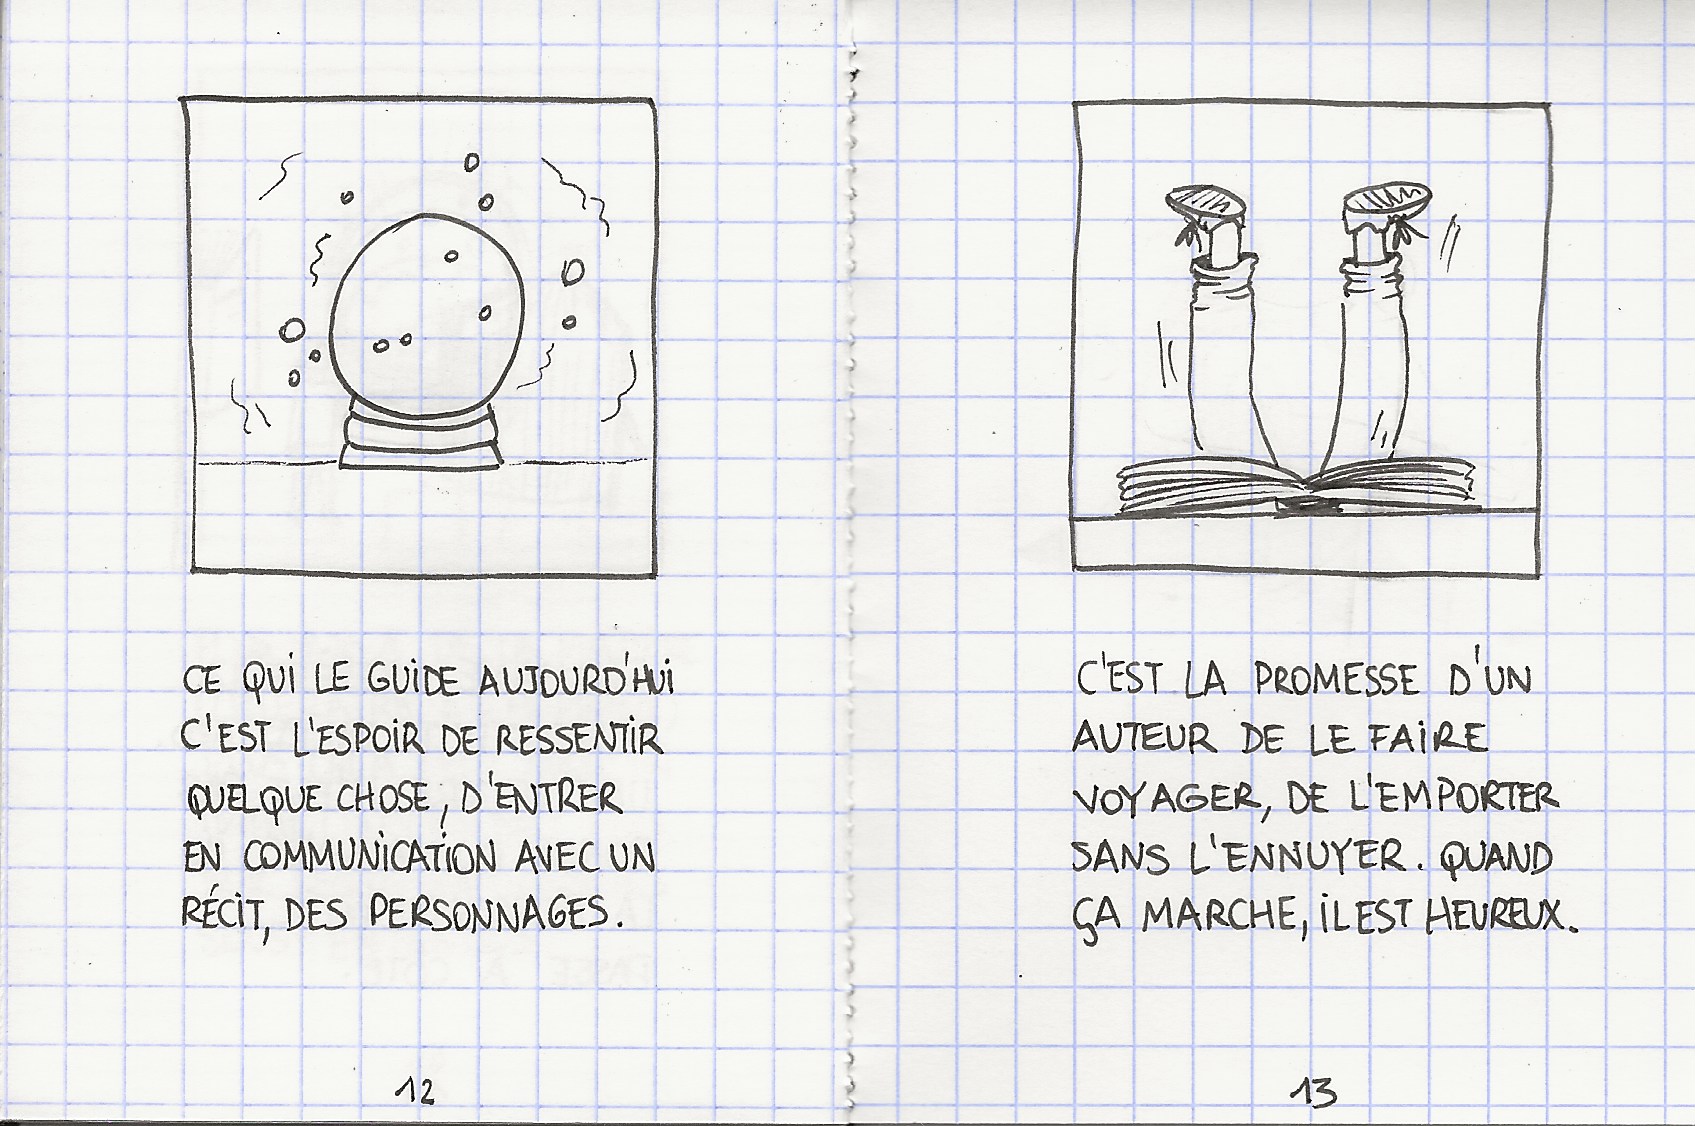 CE QUI LE GUIDE AUJOURD'HUI
C'EST L'ESPOIR DE RESSENTIR
QUELQUE CHOSE, D'ENTRER
EN COMMUNICATION AVEC UN
RÉCIT, DES PERSONNAGES.
12
C'EST LA PROMESSE D'UN
AUTEUR DE LE FAIRE
VOYAGER, DE L'EMPORTER
SANS L'ENNUYER. QUAND
ÇA MARCHE, IL EST HEUREUX.
13